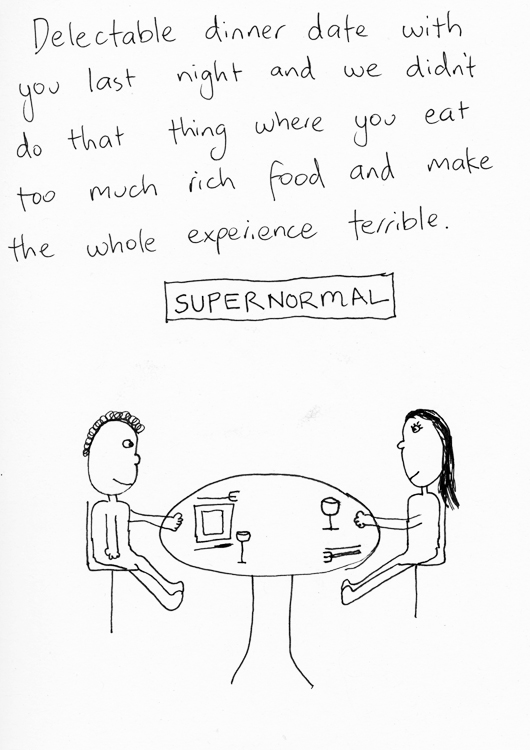 Delectable dinner date with
you last night and we didn't
do that thing where you eat
too much rich food and make
the whole experience terrible.
SUPERNORMAL